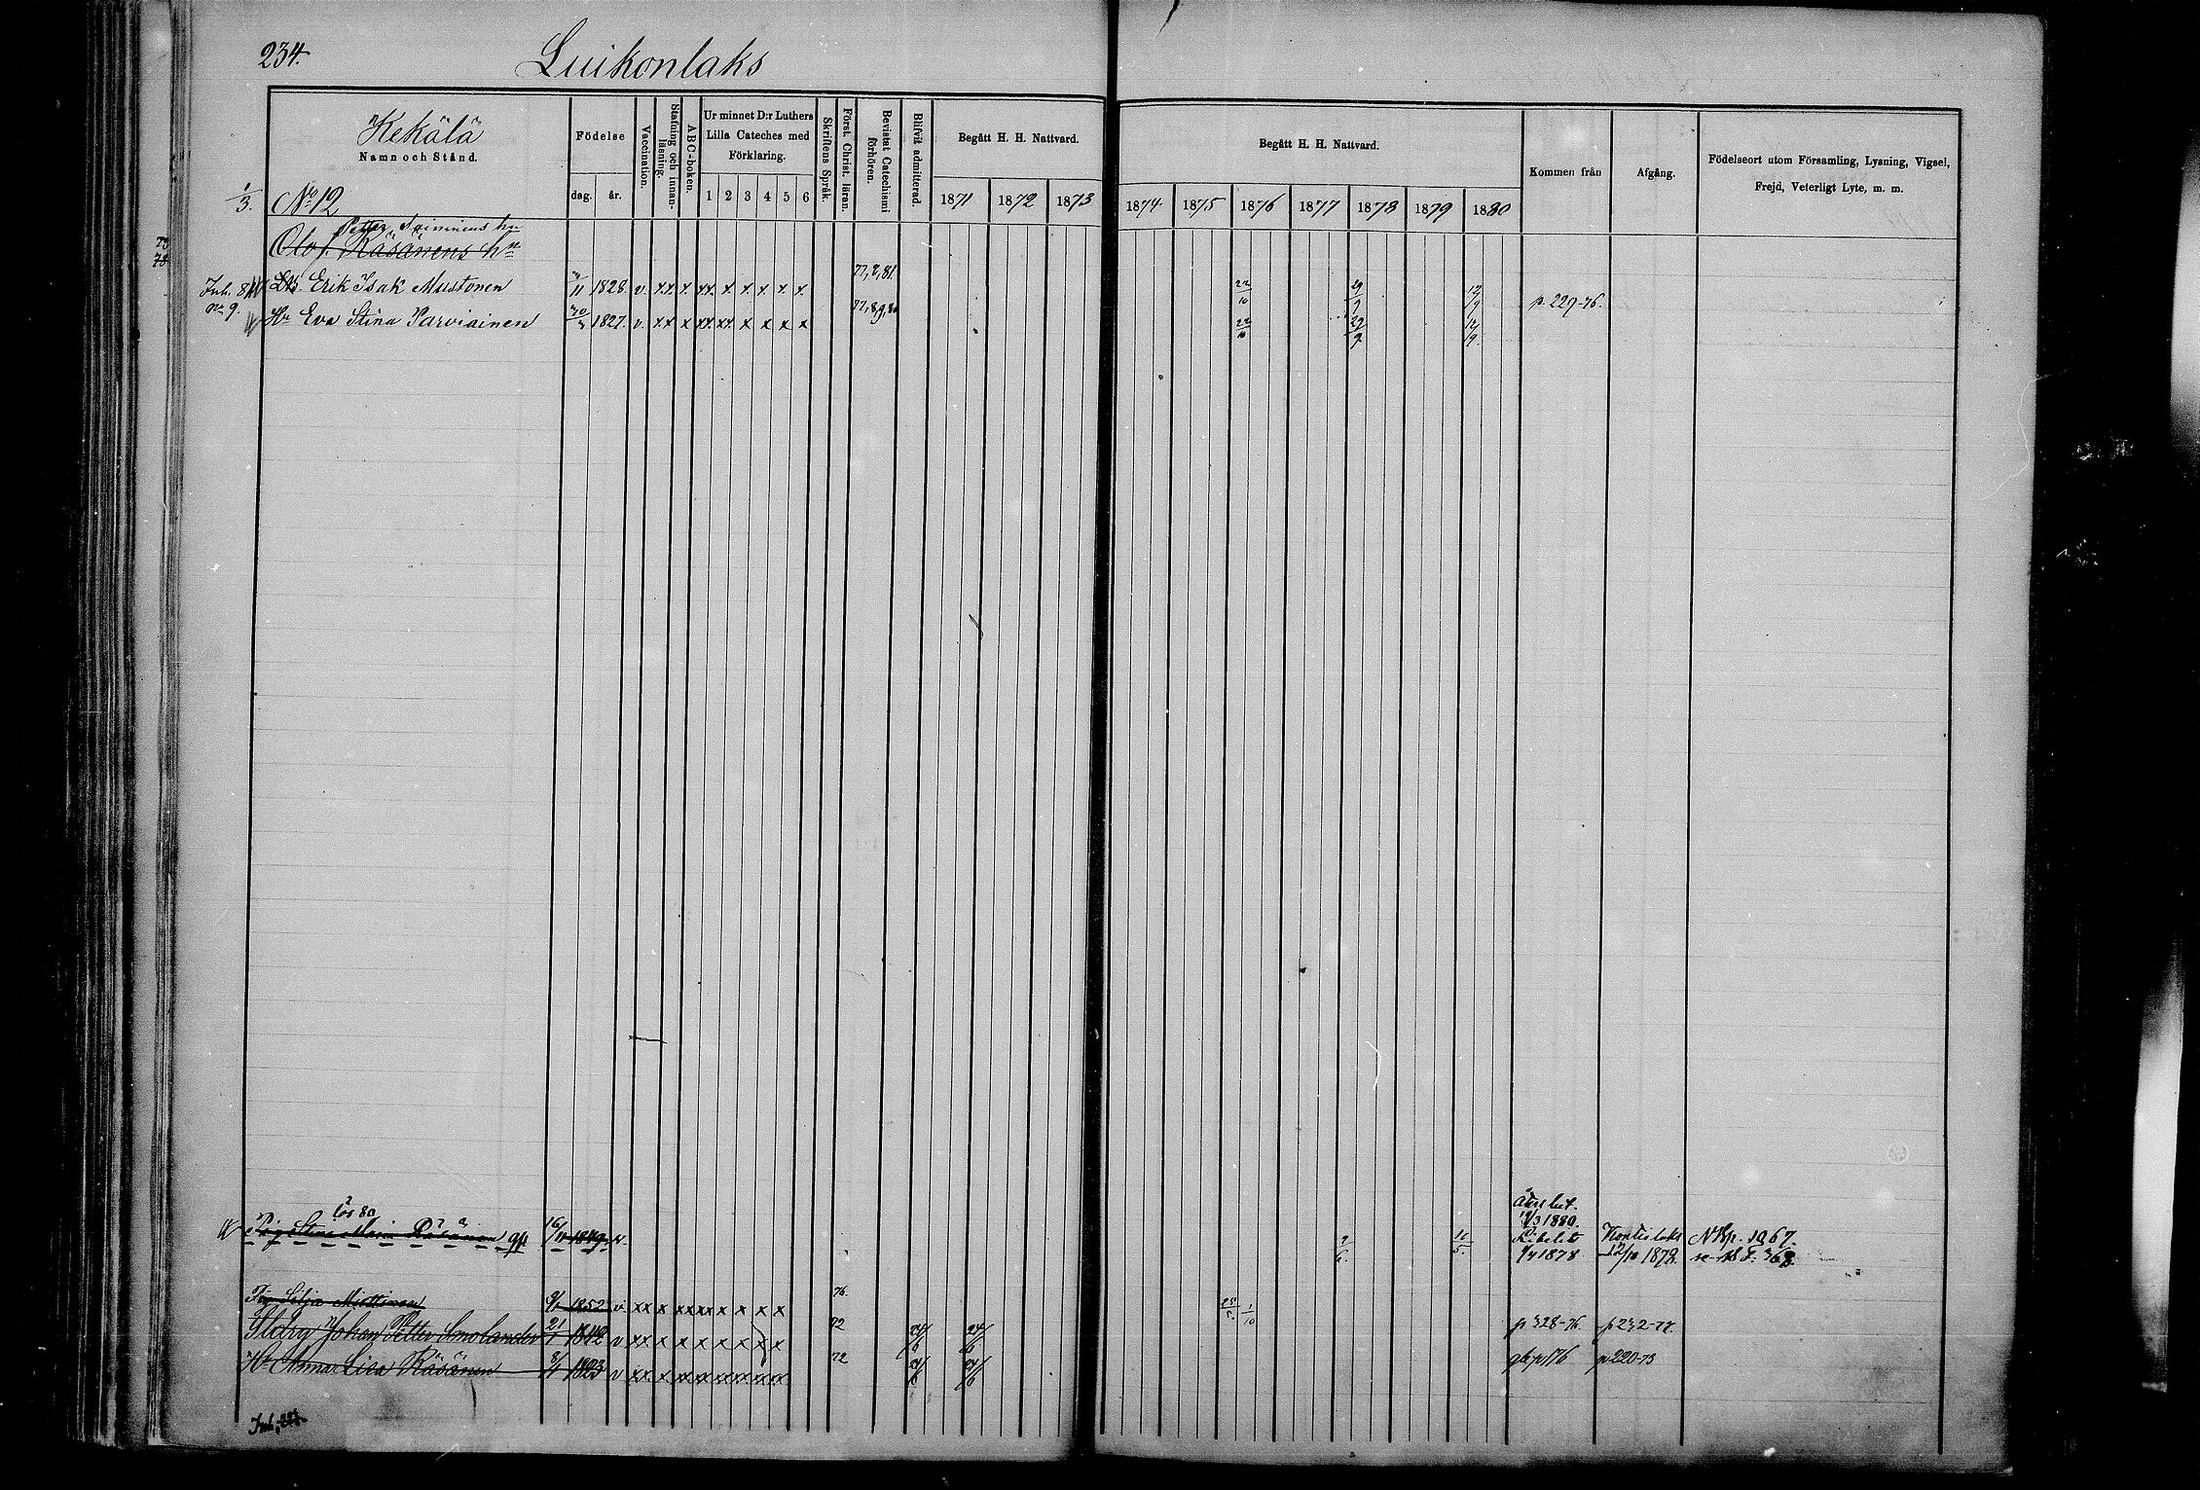 234.
Luikonlaks
Kekälä
Namn och Stånd.
Födelse
dag. år.
Vaccination.
Stafning och innanläsning.
ABC-boken.
Ur minnet D:r Luthers
Lilla Cateches med
Förklaring.
1 2 3 4 5 6
Skriftens Språk.
Först. Christ. läran.
Bevistat Catechismi förhören.
Blifvit admitterad.
Begått H. H. Nattvard.
1871 1872 1873
Begått H. H. Nattvard.
1874 1875 1876 1877 1878 1879 1880
Kommen från
Afgång.
Födelseort utom Församling, Lysning, Vigsel,
Frejd, Veterligt Lyte, m. m.
1/3. No 12
Petter
Olof Räsänens hn
Erik Isak Mustonen 1828. v. x.x. x. xx. x. x. x. x. x. 22/10 29/9 12/9 p. 229-76.
Hu Eva Stina Parviainen 1827. v. x.x x xx. xx. x x x x 22/10 29/9 12/9.
lös 80
Stina Maria Räsänen 16/11 1849 v.
1880.
Libelits 1878 Kontiolaks 12/10 1878 1967.
Silja 1852 v. xx x xx xx x x x x 76. 1/10
Johan Petter Smolander 21/1 1842 v xx x x x x x x x 72 24/6 24/6 p 328-76. p 232-77.
Hu Anna Lisa Räsänen 8/1 1823 v xx x xx xx xx xx 72 24/6 24/6 p 176 p 220-73